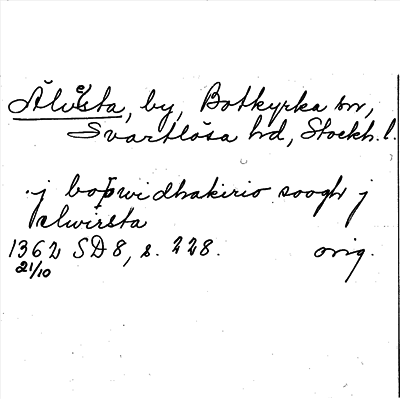 Älvesta, by, Botkyrka sn,
Svartlösa hd, Stockh. l.
j boþwidhakirio soogh j
elwirsta
1362 SD 8, s. 228. orig.
21/10